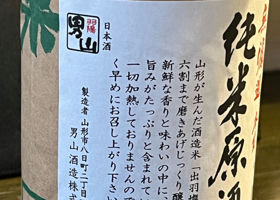 純米原酒
山形が生んだ酒造米「出羽
六割まで磨きあげじっくり醸
新鮮な香りと味わいの中に
旨みがたっぷりと含まれて
一切加熱しておりませんので
く早めにお召し上がり下さい
製造者 山形市八日町二丁目
男山酒造株式
日本酒
羽陽
男山